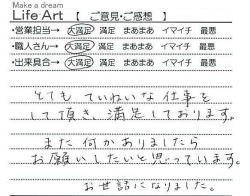 Make a dream
Life Art 【 ご意見・ご感想 】
・営業担当→ 大満足 満足 まあまあ イマイチ 最悪
・職人さん→ 大満足 満足 まあまあ イマイチ 最悪
・出来具合→ 大満足 満足 まあまあ イマイチ 最悪
とても ていねいな 仕事を
して頂き、満足しております。
また何かありましたら
お願いしたいと思っています。
お世話になりました。